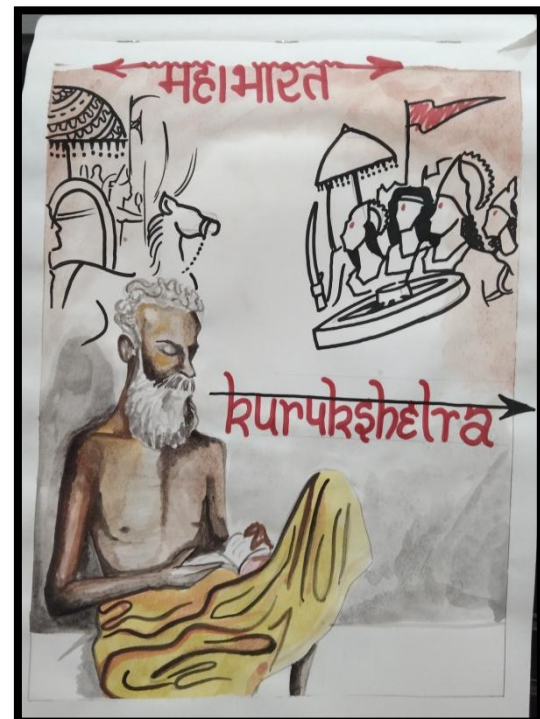 महाभारत
kurukshetra